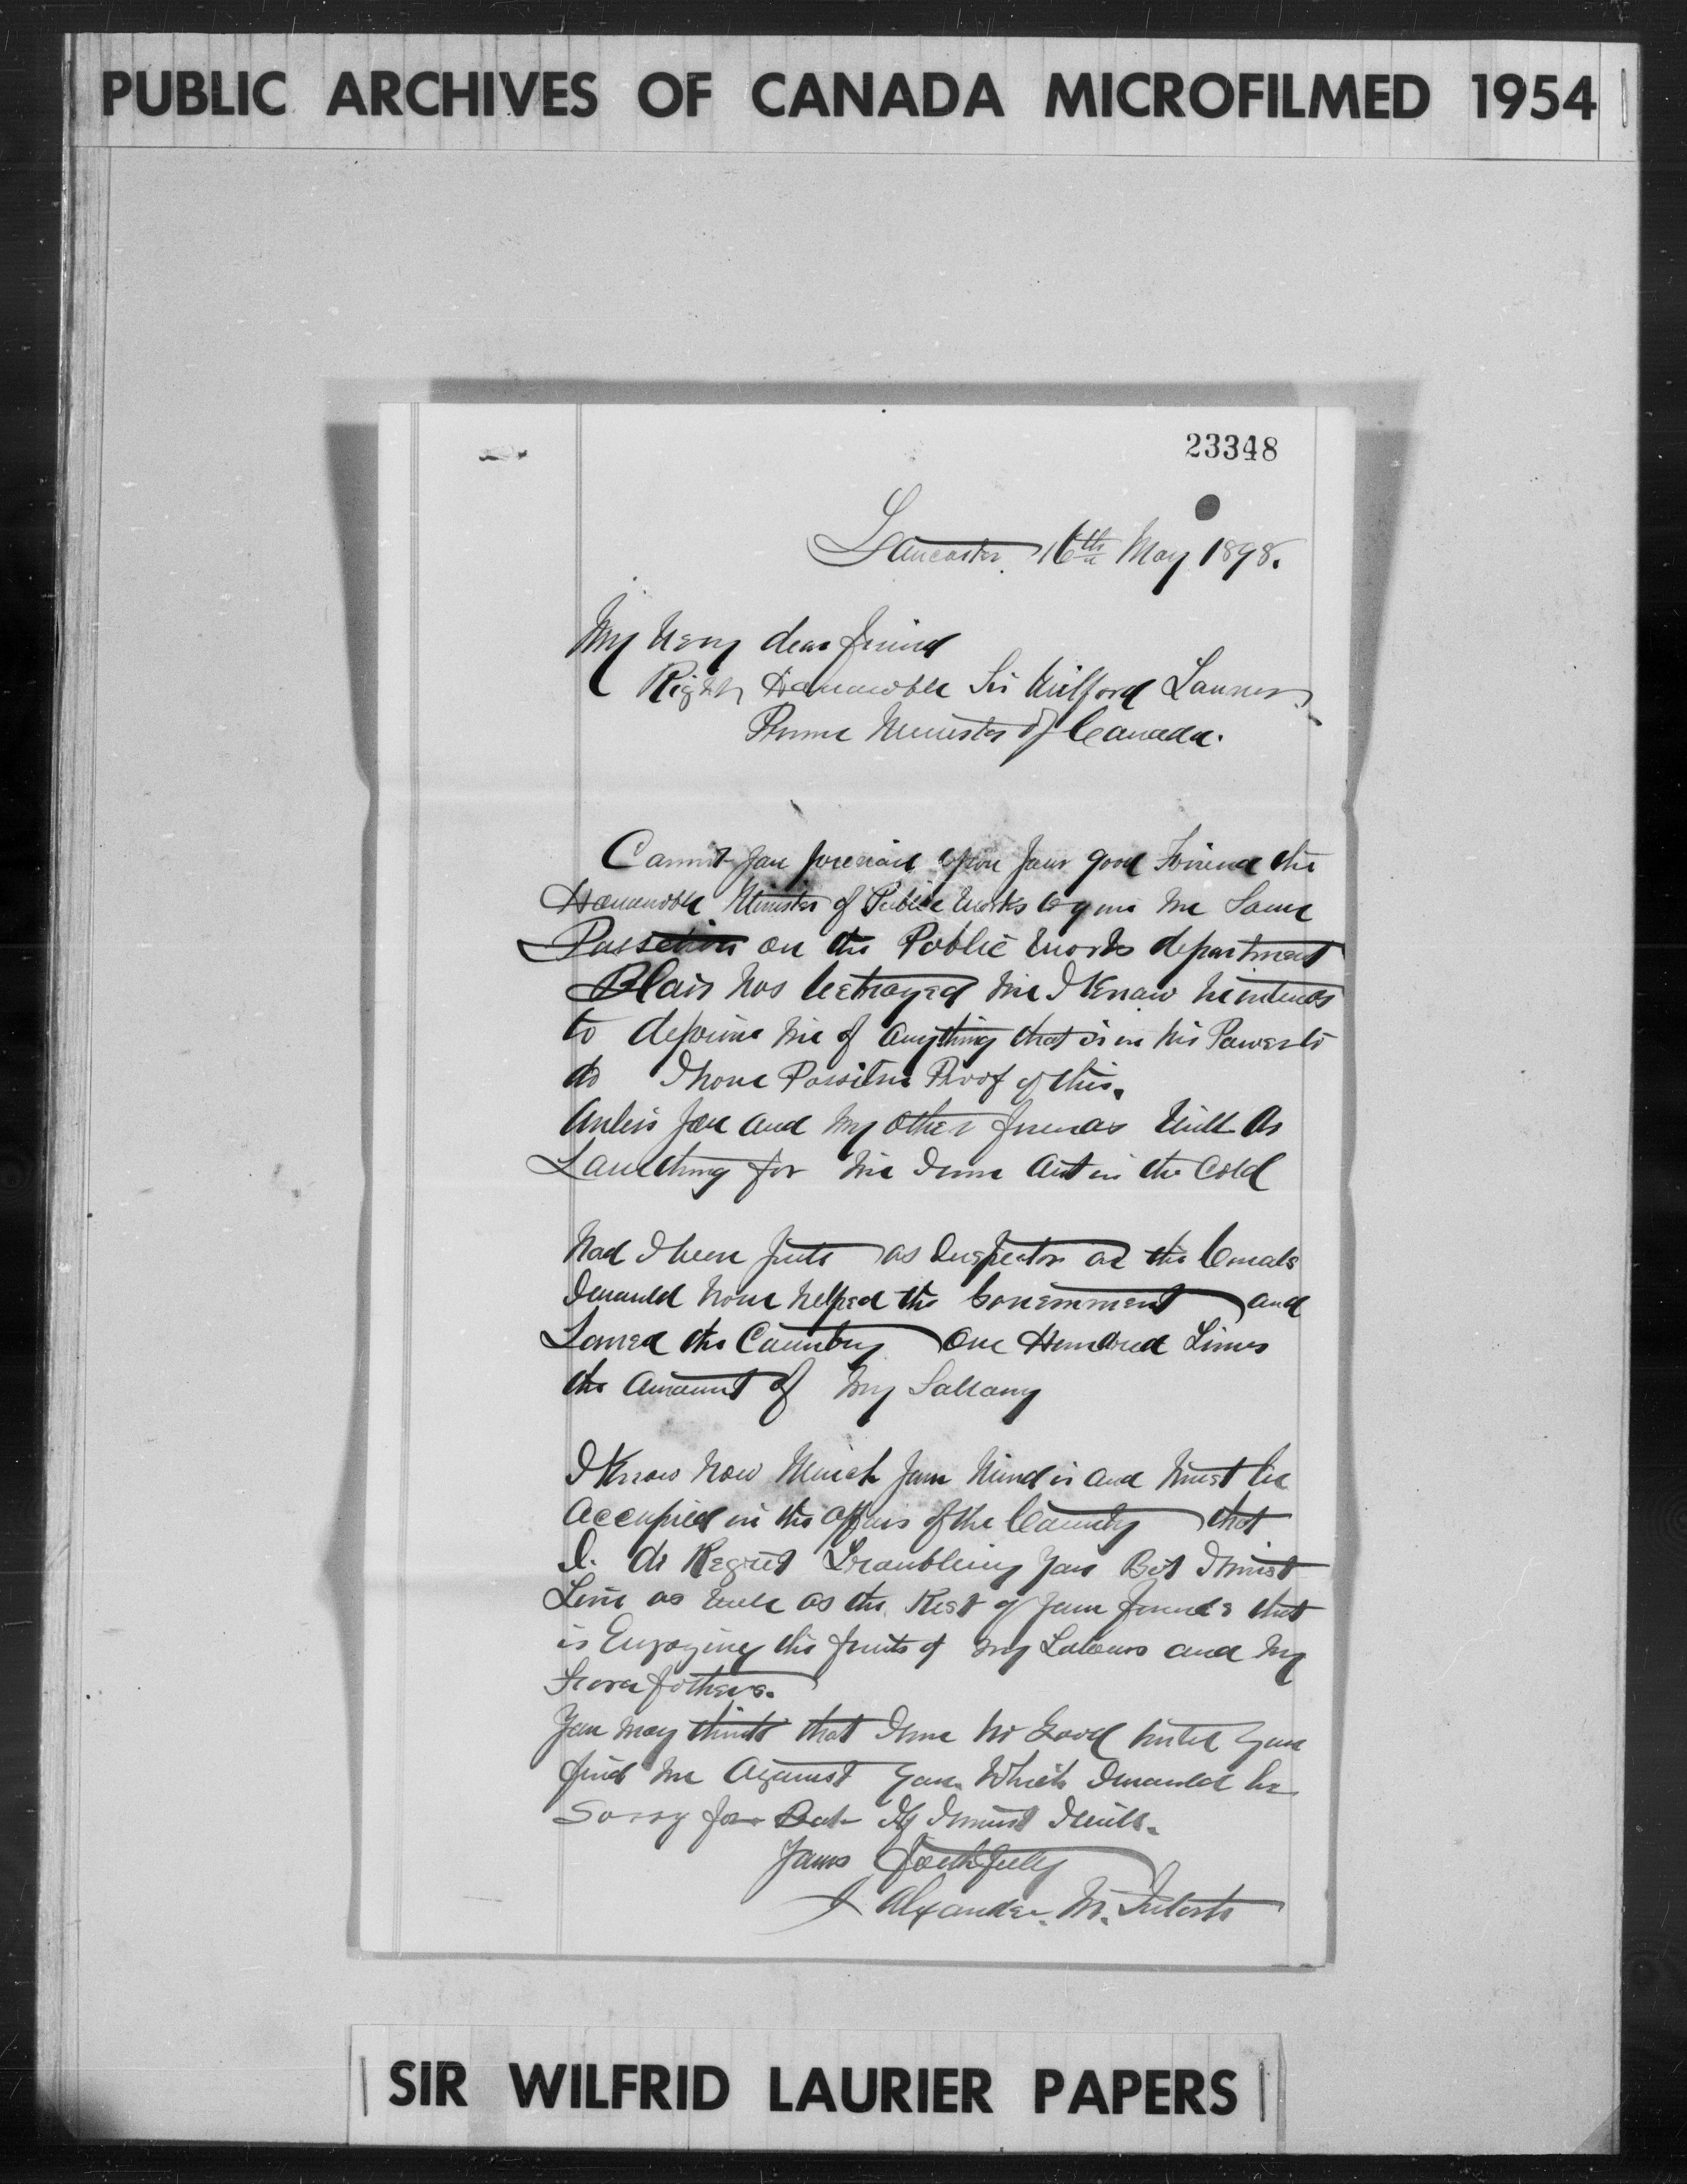 PUBLIC ARCHIVES OF CANADA MICROFILMED 1954
23348
Lancaster 16th May 1898.
My Very dear friend
Right Honourable Sir Wilford Laurier
Prime Minister of Canada.
Cannot you prevail upon your good Friend the
Honourable Minister of Public Works to give me Some
on the Public Works department
Blair has betrayed me I Know he intends
to deprive me of anything that is in his Power to
do I have Possitive Proof of this.
Unless you and my other friends Will do
Something for me I am out in the Cold
had I been as Inspector on the Canals
I would have helped the Government and
Saved the Country One Hundred Times
the amount of my Sallary
I Know how Much your Mind is and must be
Occupied in the affairs of the Country that
I do Regret Troubleing you But I must
Live as well as the Rest of your friends that
is Enjoying the fruits of my Labours and my
Forefathers.
You may think that I am no Good until you
find me Against you Which I would be
Sorry for But If I must I will.
Yours faithfully
Alexander M.
SIR WILFRID LAURIER PAPERS